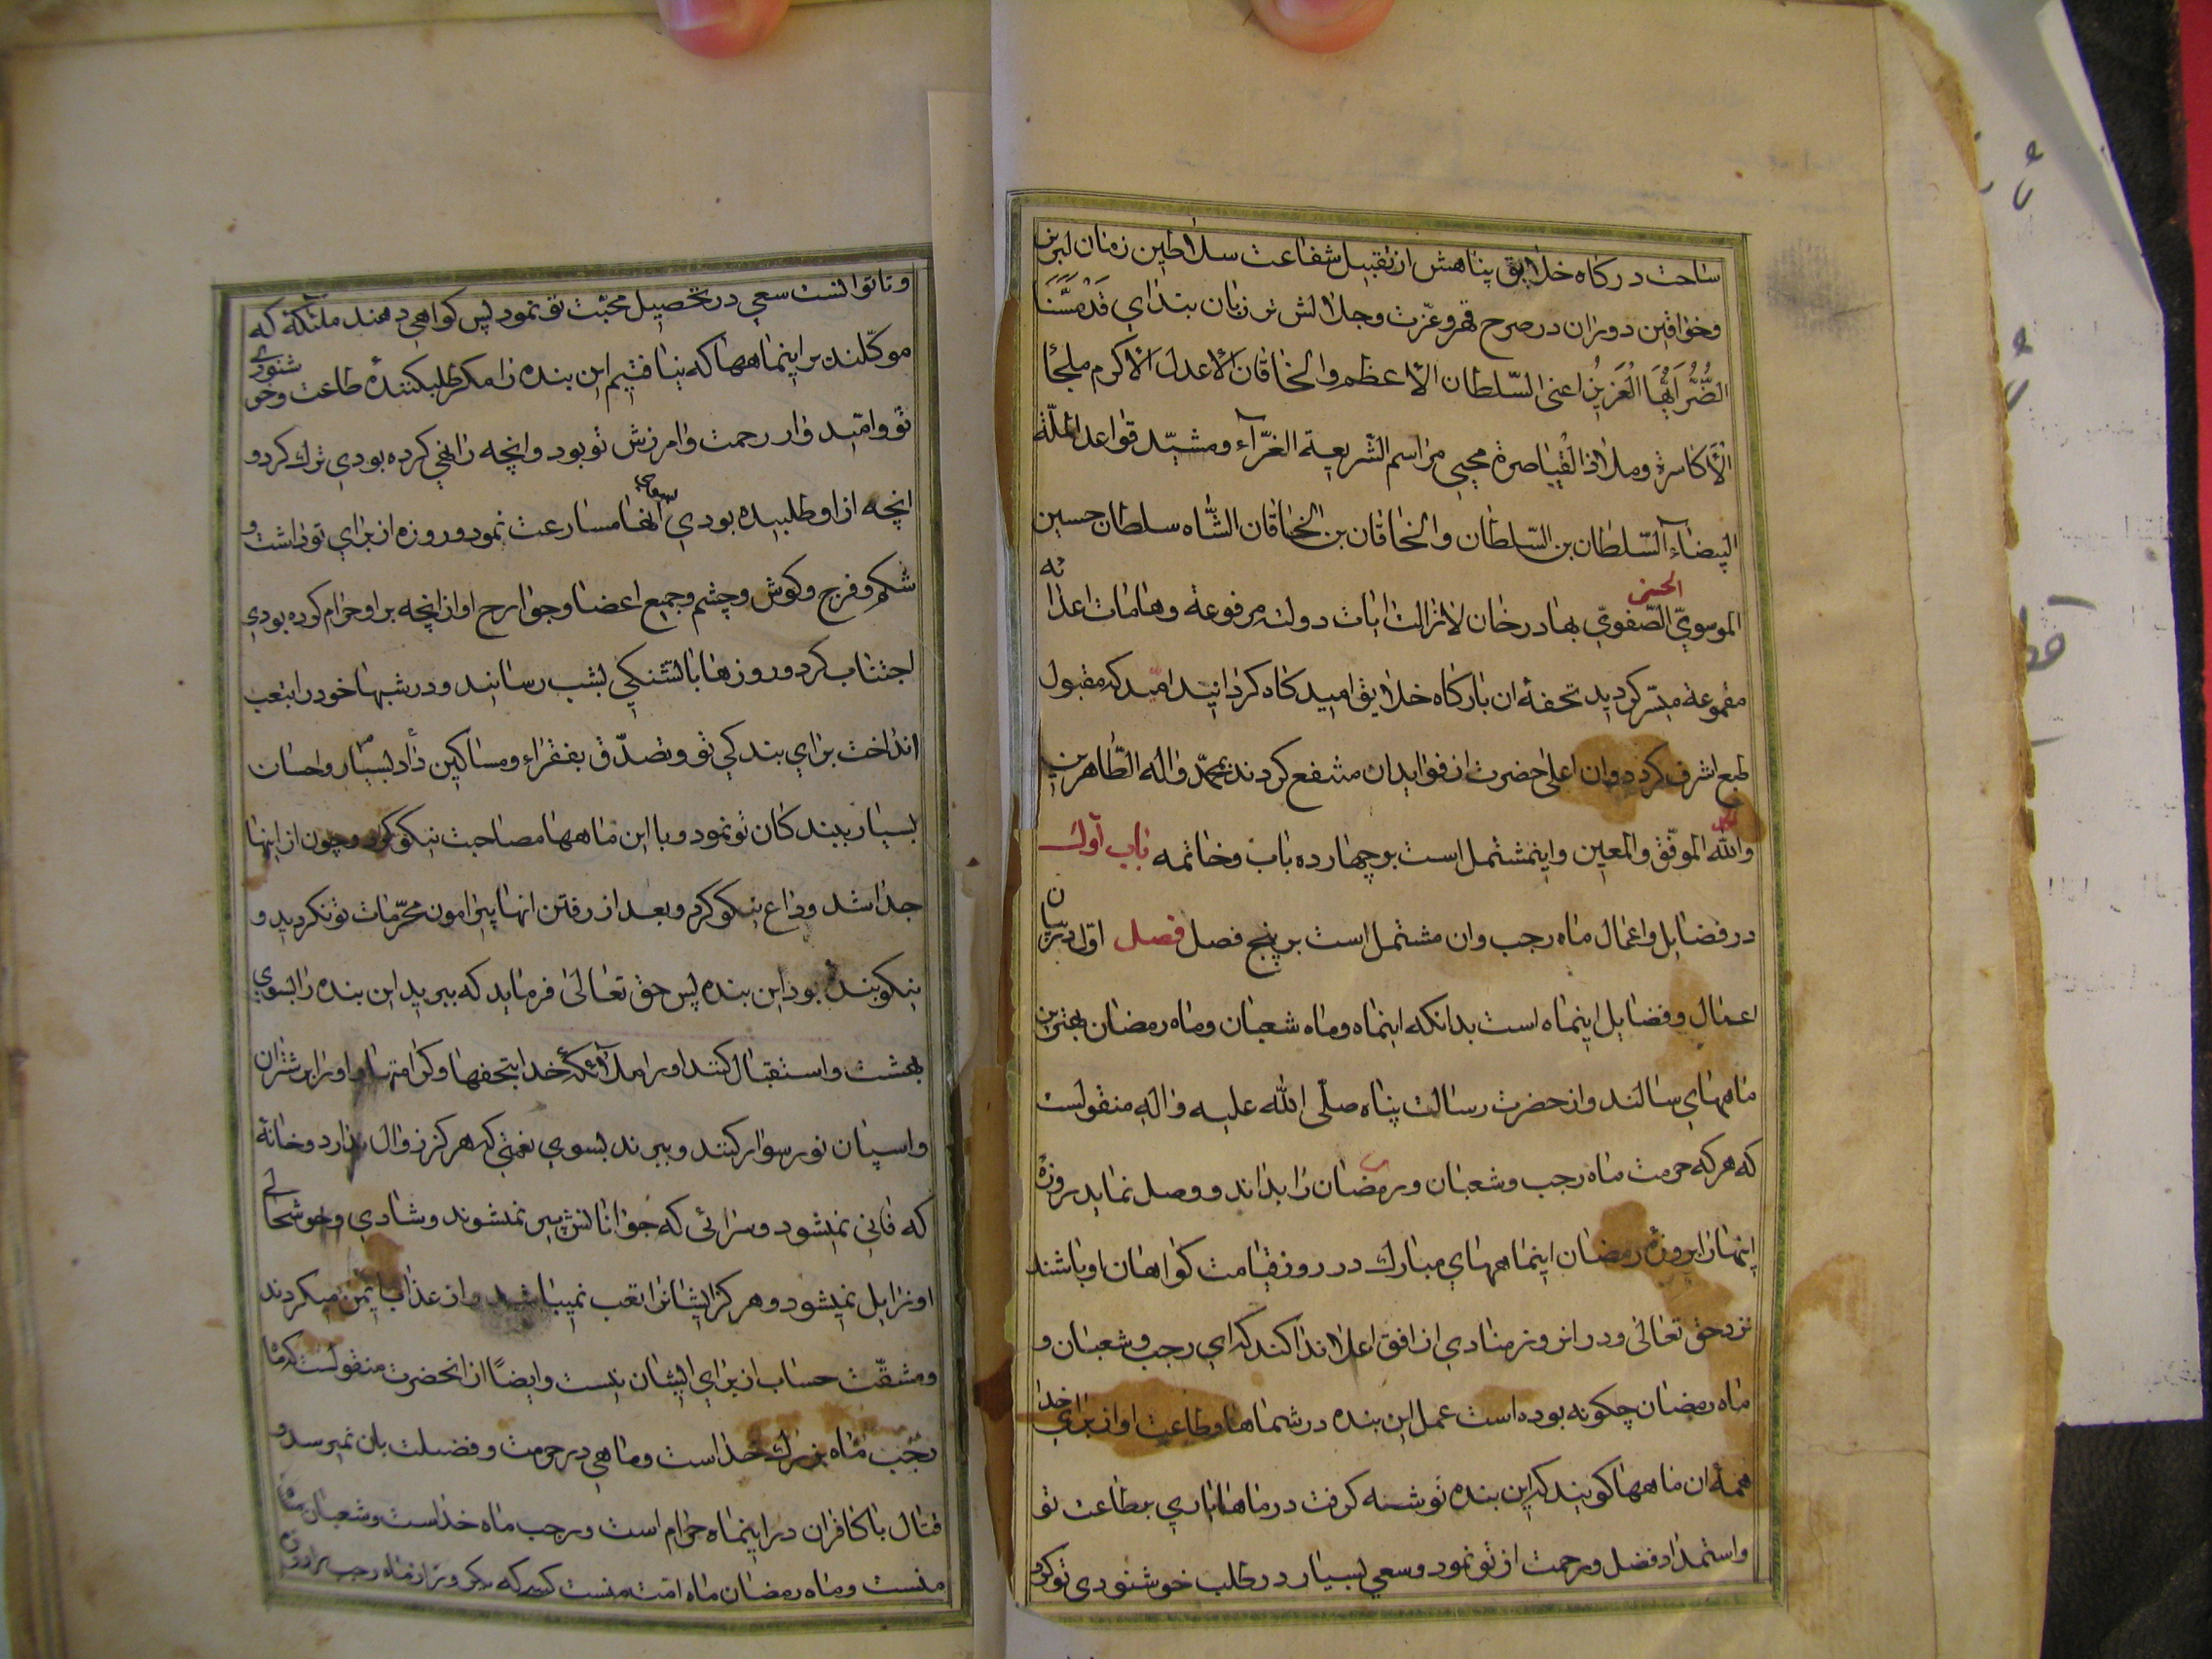 ساحت درگاه خلایق پناهش از تقبیل شفاعت سلاطین زمان لبریز
وخواقین دوران در صرح قهر و عزّت وجلالش تر زبان بندای قَدْ مَسَّنَا
الضُّرُّ اَیُّهَا الْعَزِیزُ اعنی السّلطان الاعظم والخاقان الاعدل الاکرم ملجأ
الاکاسرة وملاذ القیاصرة محیی مراسم الشریعة الغرّآء ومشیّد قواعد الملّة
البیضآء السّلطان بن السّلطان والخاقان بن الخاقان الشّاه سلطان حسین
الموسویّ الحسنی الصّفویّ بهادرخان لازالت ایات دولته مرفوعة وهامات اعدائه
مقموعة میسّر کردید تحفهٔ ان بارکاه خلایق امیدکاه کردانید امید که مقبول
طبع اشرف کردد وان اعلی حضرت از فواید ان منتفع کردند بمحمّد واله الطّاهرین
والله الموفّق والمعین واین مشتملست بر چهارده باب وخاتمه باب اوّل
در فضایل واعمال ماه رجب وان مشتمل است بر پنج فصل فصل اوّل در بیان
اعمال وفضایل اینماه است بدانکه اینماه وماه شعبان وماه رمضان بهترین
ماههای سالند واز حضرت رسالت پناه صلّی الله علیه واله منقولست
که هر که حرمت ماه رجب وشعبان ورمضان را بداند ووصل نماید روزهٔ
اینها را بروزهٔ رمضان اینماههای مبارک در روز قیامت کواهان او باشند
نزد حق تعالی ودر انروز منادی از افق اعلا ندا کند که ای رجب وشعبان و
ماه رمضان چکونه بوده است عمل این بنده در شماها وطاعت او از برای خدا
همهٔ ان ماهها کویند که این بنده توشه کرفت در ماها یاری بطاعت تو
واستمداد فضل ورحمت از تو نمود وسعی بسیار در طلب خوشنودی تو کرد
وتا توانست سعی در تحصیل محبّت تو نمود پس کواهی دهند ملئکهٔ که
موکّلند بر اینماهها که نیافتیم این بنده را مکر طلب کنندهٔ طاعت وخوشنودی
تو وامیدوار رحمت وامرزش تو بود وانچه را نهی کرده بودی ترک کرد و
انچه از او طلبیده بودی بانها مسارعت نمود وروزه از برای تو داشت و
شکم وفرج وکوش وچشم وجمیع اعضا وجوارح او از انچه بر او حرام کرده بودی
اجتناب کرد وروزها با تشنکی بشب رسانید ودر شبها خود را بتعب
انداخت برای بندکی تو وتصدّق بفقراء ومساکین داد بسیار واحسان
بسیار ببندکان تو نمود وبا این ماهها مصاحبت نیکو کرد وچون از اینها
جدا شد وداع نیکو کرد وبعد از رفتن انها پیرامون محرّمات تو نکردید و
نیکو بندهٔ بود این بنده پس حق تعالی فرماید که ببرید این بنده را بسوی
بهشت واستقبال کنند اورا ملائکهٔ خدا بتحفها وکرامتها واورا بر شتران
واسبان نور سوار کنند وببرند بسوی نعمتی که هرکز زوال ندارد وخانهٔ
که فانی نمیشود وسرائی که جوانانش پیر نمیشوند وشادی وخوشحالی
او زایل نمیشود وهرکز ایشانرا تعب نمیباشد واز عذاب ایمن میکردند
ومشقّت حساب از برای ایشان نیست وایضًا از انحضرت منقولست که ما
رجب ماه بزرک خداست وماهی در حرمت وفضلت بان نمیرسد و
قتال با کافران در اینماه حرام است ورجب ماه خداست وشعبان ماه
منست وماه رمضان ماه امّت منست کسیکه یکروز از ماه رجب را روزه